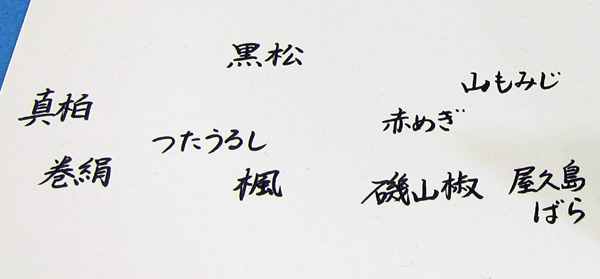 黒松
山もみじ
真柏
赤めぎ
つたうるし
巻絹
楓
磯山椒
屋久島
ばら